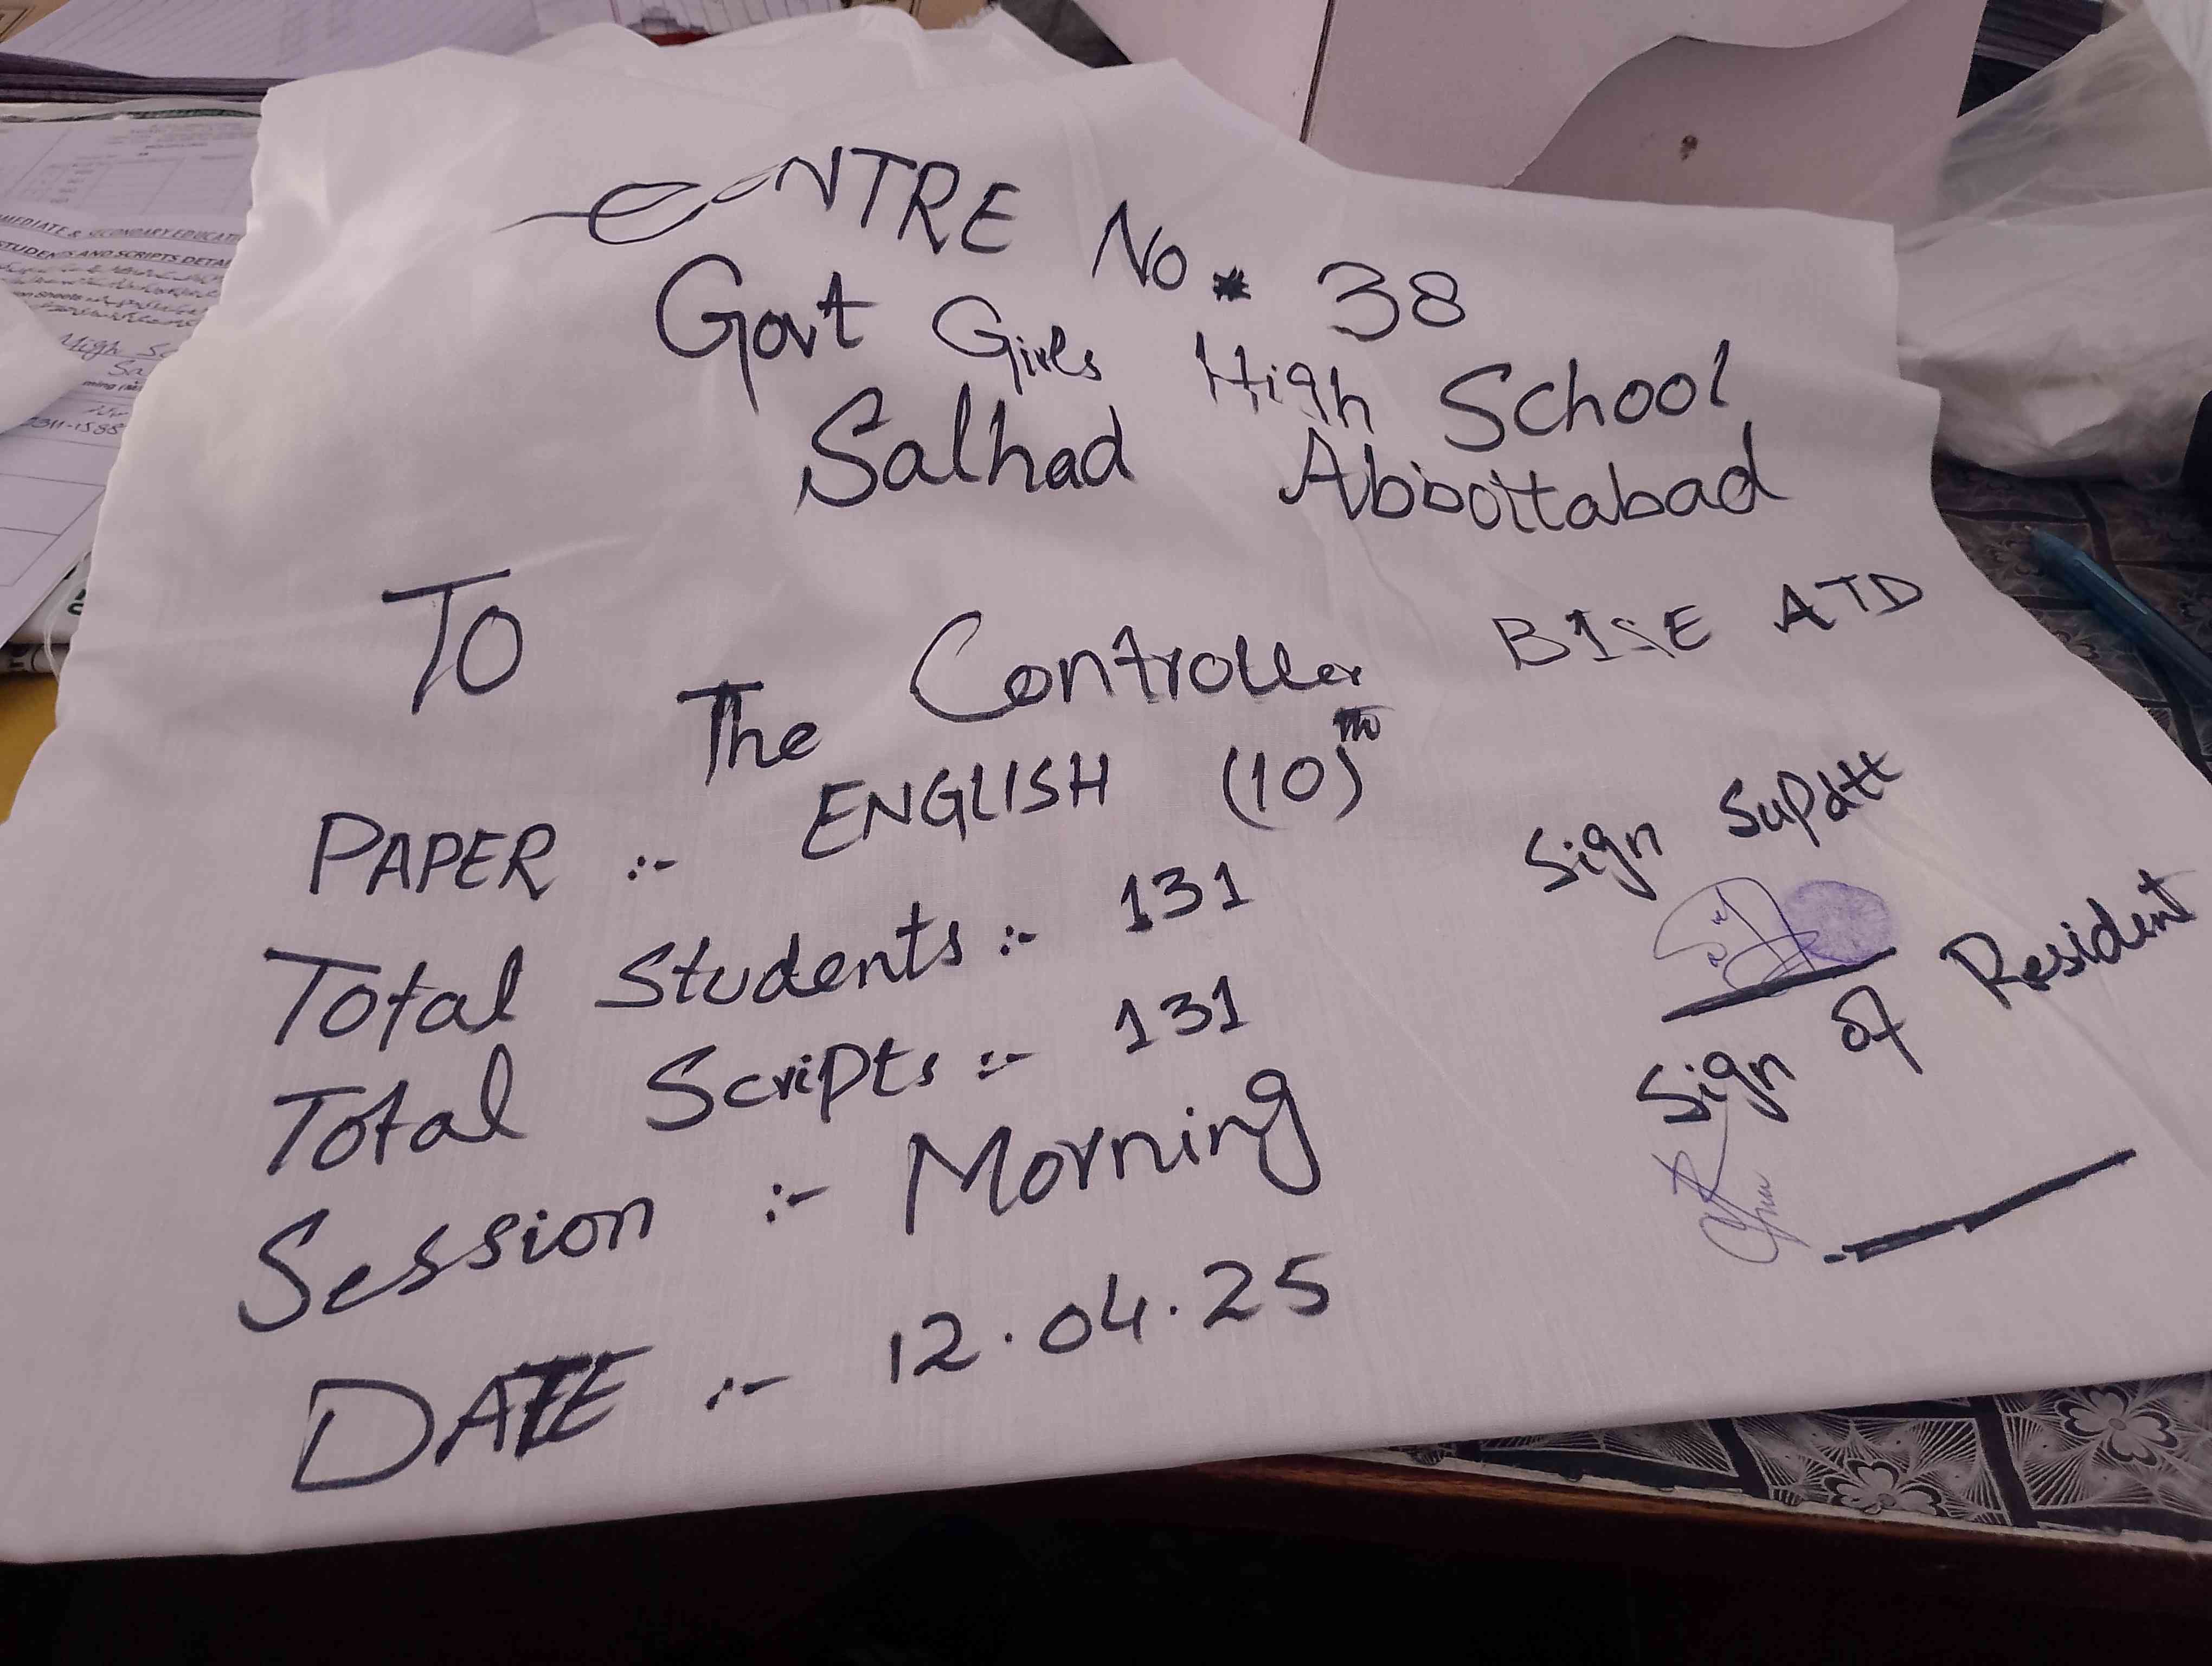 CENTRE No. 38
Govt Girls High School
Salhad Abbottabad
To
The Controller BISE ATD
PAPER :- ENGLISH (10)th
Total Students :- 131
Total Scripts :- 131
Session :- Morning
DATE :- 12.04.25
Sign Supdtt
Sign of Resident
MEDIATE & SECONDARY EDUCATI
STUDENTS AND SCRIPTS DETAI
High Sc
Sa